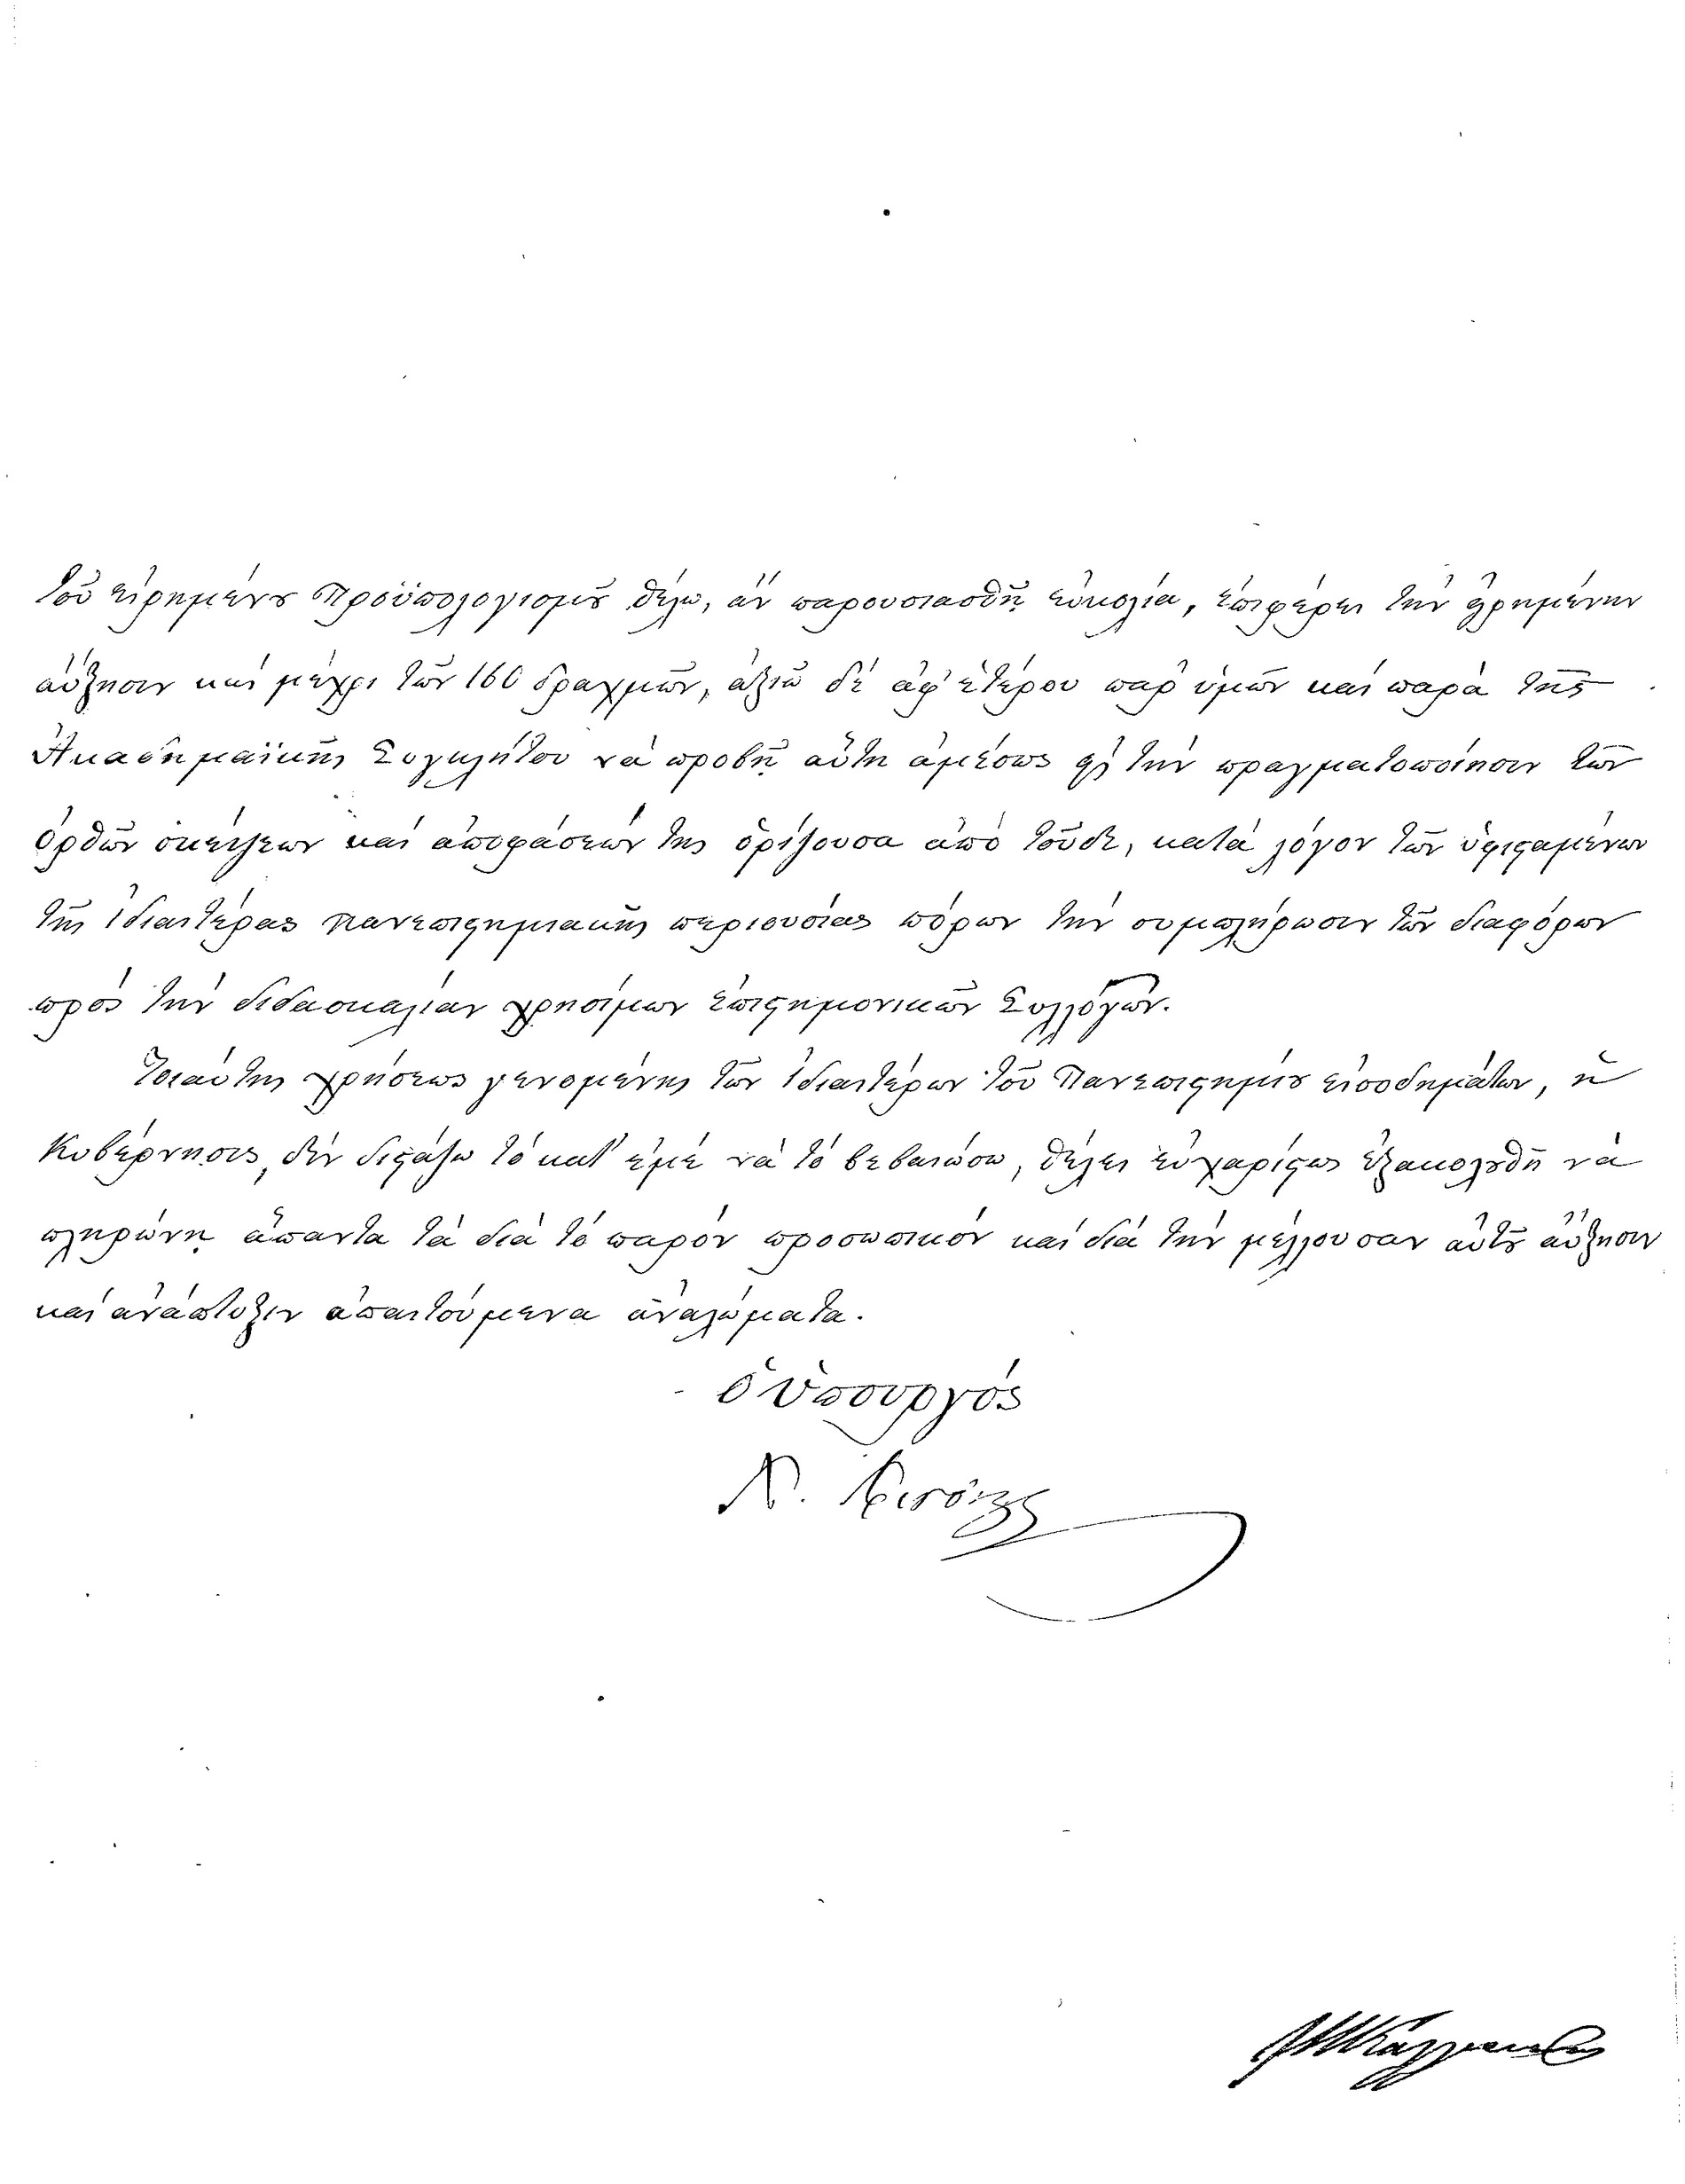 τοῦ εἰρημένου Προϋπολογισμοῦ θέλω, ἂν παρουσιασθῇ εὐκολία, ἐπιφέρει τὴν εἰρημένην
αὔξησιν καὶ μέχρι τῶν 160 δραχμῶν, ἀξιῶ δὲ ἀφ' ἑτέρου παρ' ὑμῶν καὶ παρὰ τῆς
Ἀκαδημαϊκῆς Συγκλήτου νὰ προβῇ αὕτη ἀμέσως εἰς τὴν πραγματοποίησιν τῶν
ὀρθῶν σκέψεων καὶ ἀποφάσεών της ὁρίζουσα ἀπὸ τοῦδε, κατὰ λόγον τῶν ὑφισταμένων
τῆς ἰδιαιτέρας πανεπιστημιακῆς περιουσίας πόρων τὴν συμπλήρωσιν τῶν διαφόρων
πρὸς τὴν διδασκαλίαν χρησίμων ἐπιστημονικῶν Συλλογῶν.
Τοιαύτης χρήσεως γενομένης τῶν ἰδιαιτέρων τοῦ Πανεπιστημίου εἰσοδημάτων, ἡ
Κυβέρνησις, δὲν διστάζω τὸ κατ' ἐμὲ νὰ τὸ βεβαιώσω, θέλει εὐχαρίστως ἐξακολουθῆ νὰ
πληρώνῃ ἅπαντα τὰ διὰ τὸ παρὸν προσωπικὸν καὶ διὰ τὴν μέλλουσαν αὐτοῦ αὔξησιν
καὶ ἀνάπτυξιν ἀπαιτούμενα ἀναλώματα.
ὁ Ὑπουργός